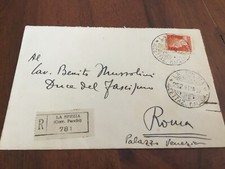 Al
Cav. Benito Mussolini
Duce del Fascismo
R
LA SPEZIA
(Corr. Pacchi)
781
Roma
Palazzo Venezia